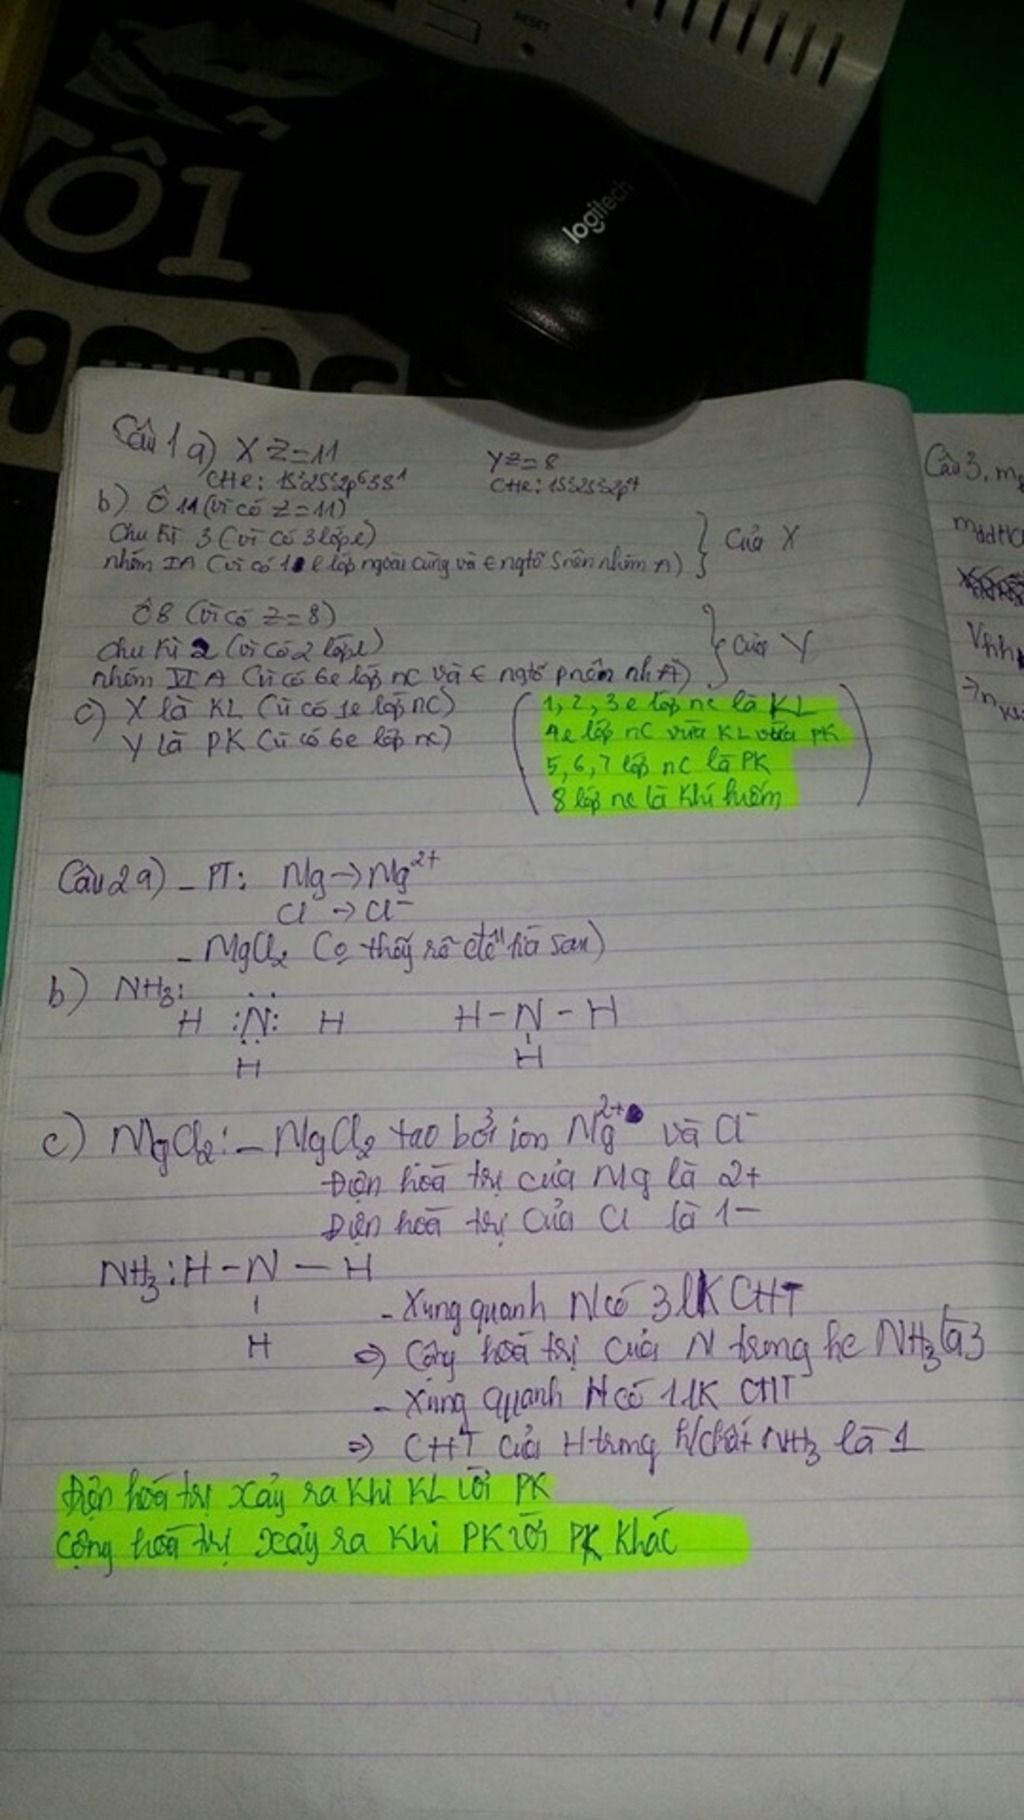 RESET
logitech
ÔI
Câu 1 a) X Z=11 YZ=8
CHe: 1s²2s²2p⁶3s¹ CHe: 1s²2s²2p⁴
b) Ô 11 (vì có Z=11)
Chu kì 3 (vì có 3 lớp e) } Của X
nhóm IA (vì có 1 e lớp ngoài cùng và ∈ ngtố s nên nhóm A)
Ô 8 (vì có Z=8)
chu kì 2 (vì có 2 lớp e) } của Y
nhóm VIA (vì có 6e lớp nc và ∈ ngtố p nên nh A)
c) X là KL (vì có 1e lớp nc)
Y là PK (vì có 6e lớp nc)
(1, 2, 3 e lớp nc là KL
4e lớp nc vừa KL vừa PK
5, 6, 7 lớp nc là PK
8 lớp nc là khí hiếm)
Câu 2 a) - PT: Mg → Mg²⁺
Cl → Cl⁻
- MgCl₂
b) NH₃:
H :N: H H-N-H
H H
c) MgCl₂: - MgCl₂ tạo bởi ion Mg²⁺ và Cl⁻
Điện hoá trị của Mg là 2+
Điện hoá trị của Cl là 1-
NH₃: H - N - H
- Xung quanh N có 3 LK CHT
H
⇒ Cộng hoá trị của N trong hc NH₃ là 3
- Xung quanh H có 1 LK CHT
⇒ CHT của H trong h/chất NH₃ là 1
Điện hoá trị xảy ra khi KL với PK
Cộng hoá trị xảy ra khi PK với PK khác
Câu 3,